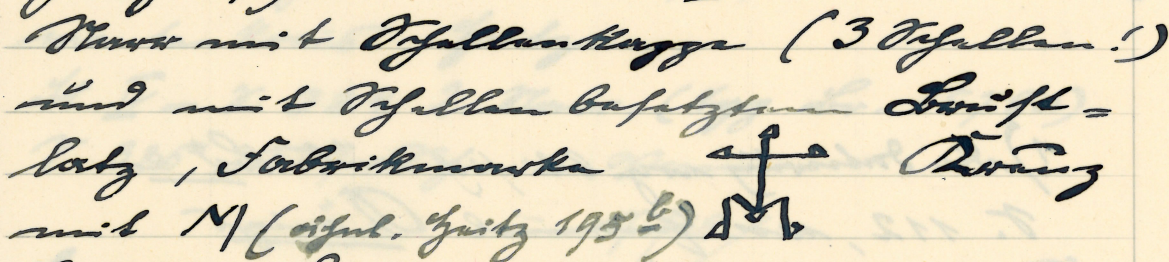 Narr mit Schellenkappe (3 Schellen!)
und mit Schellen besetztem Brust=
latz, Fabrikmarke Kreuz
mit M (ähnl. Heitz 195b)